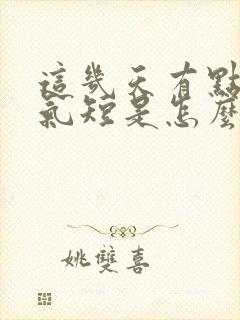 這幾天有點
氣短是怎麼
姚雙喜